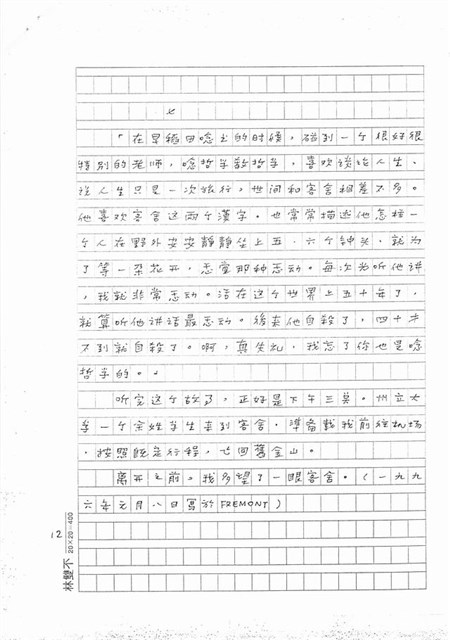 「在早稻田唸书的时候，碰到一个很好很
特别的老师，唸哲学教哲学，喜欢谈论人生。
说人生只是一次旅行，世间和客舍相差不多。
他喜欢客舍这两个漢字。也常常描述他怎样一
个人在野外安安靜靜坐上五、六个钟头，就为
了等一朵花开，感覚那种感动。每次我听他讲
，我就非常感动。活在这个世界上五十年了，
就算听他讲话最感动。後来他自殺了，四十才
不到就自殺了。啊，真失礼，我忘了你也是唸
哲学的。」
听完这个故事，正好是下午三点。州立大
学一个宗姓学生来到客舍，準备載我前往机场
，按照既定行程，飞回舊金山。
离开之前，我多望了一眼客舍。（一九九
六年元月八日寫於FREMONT）
12
20×20=400
林雙不